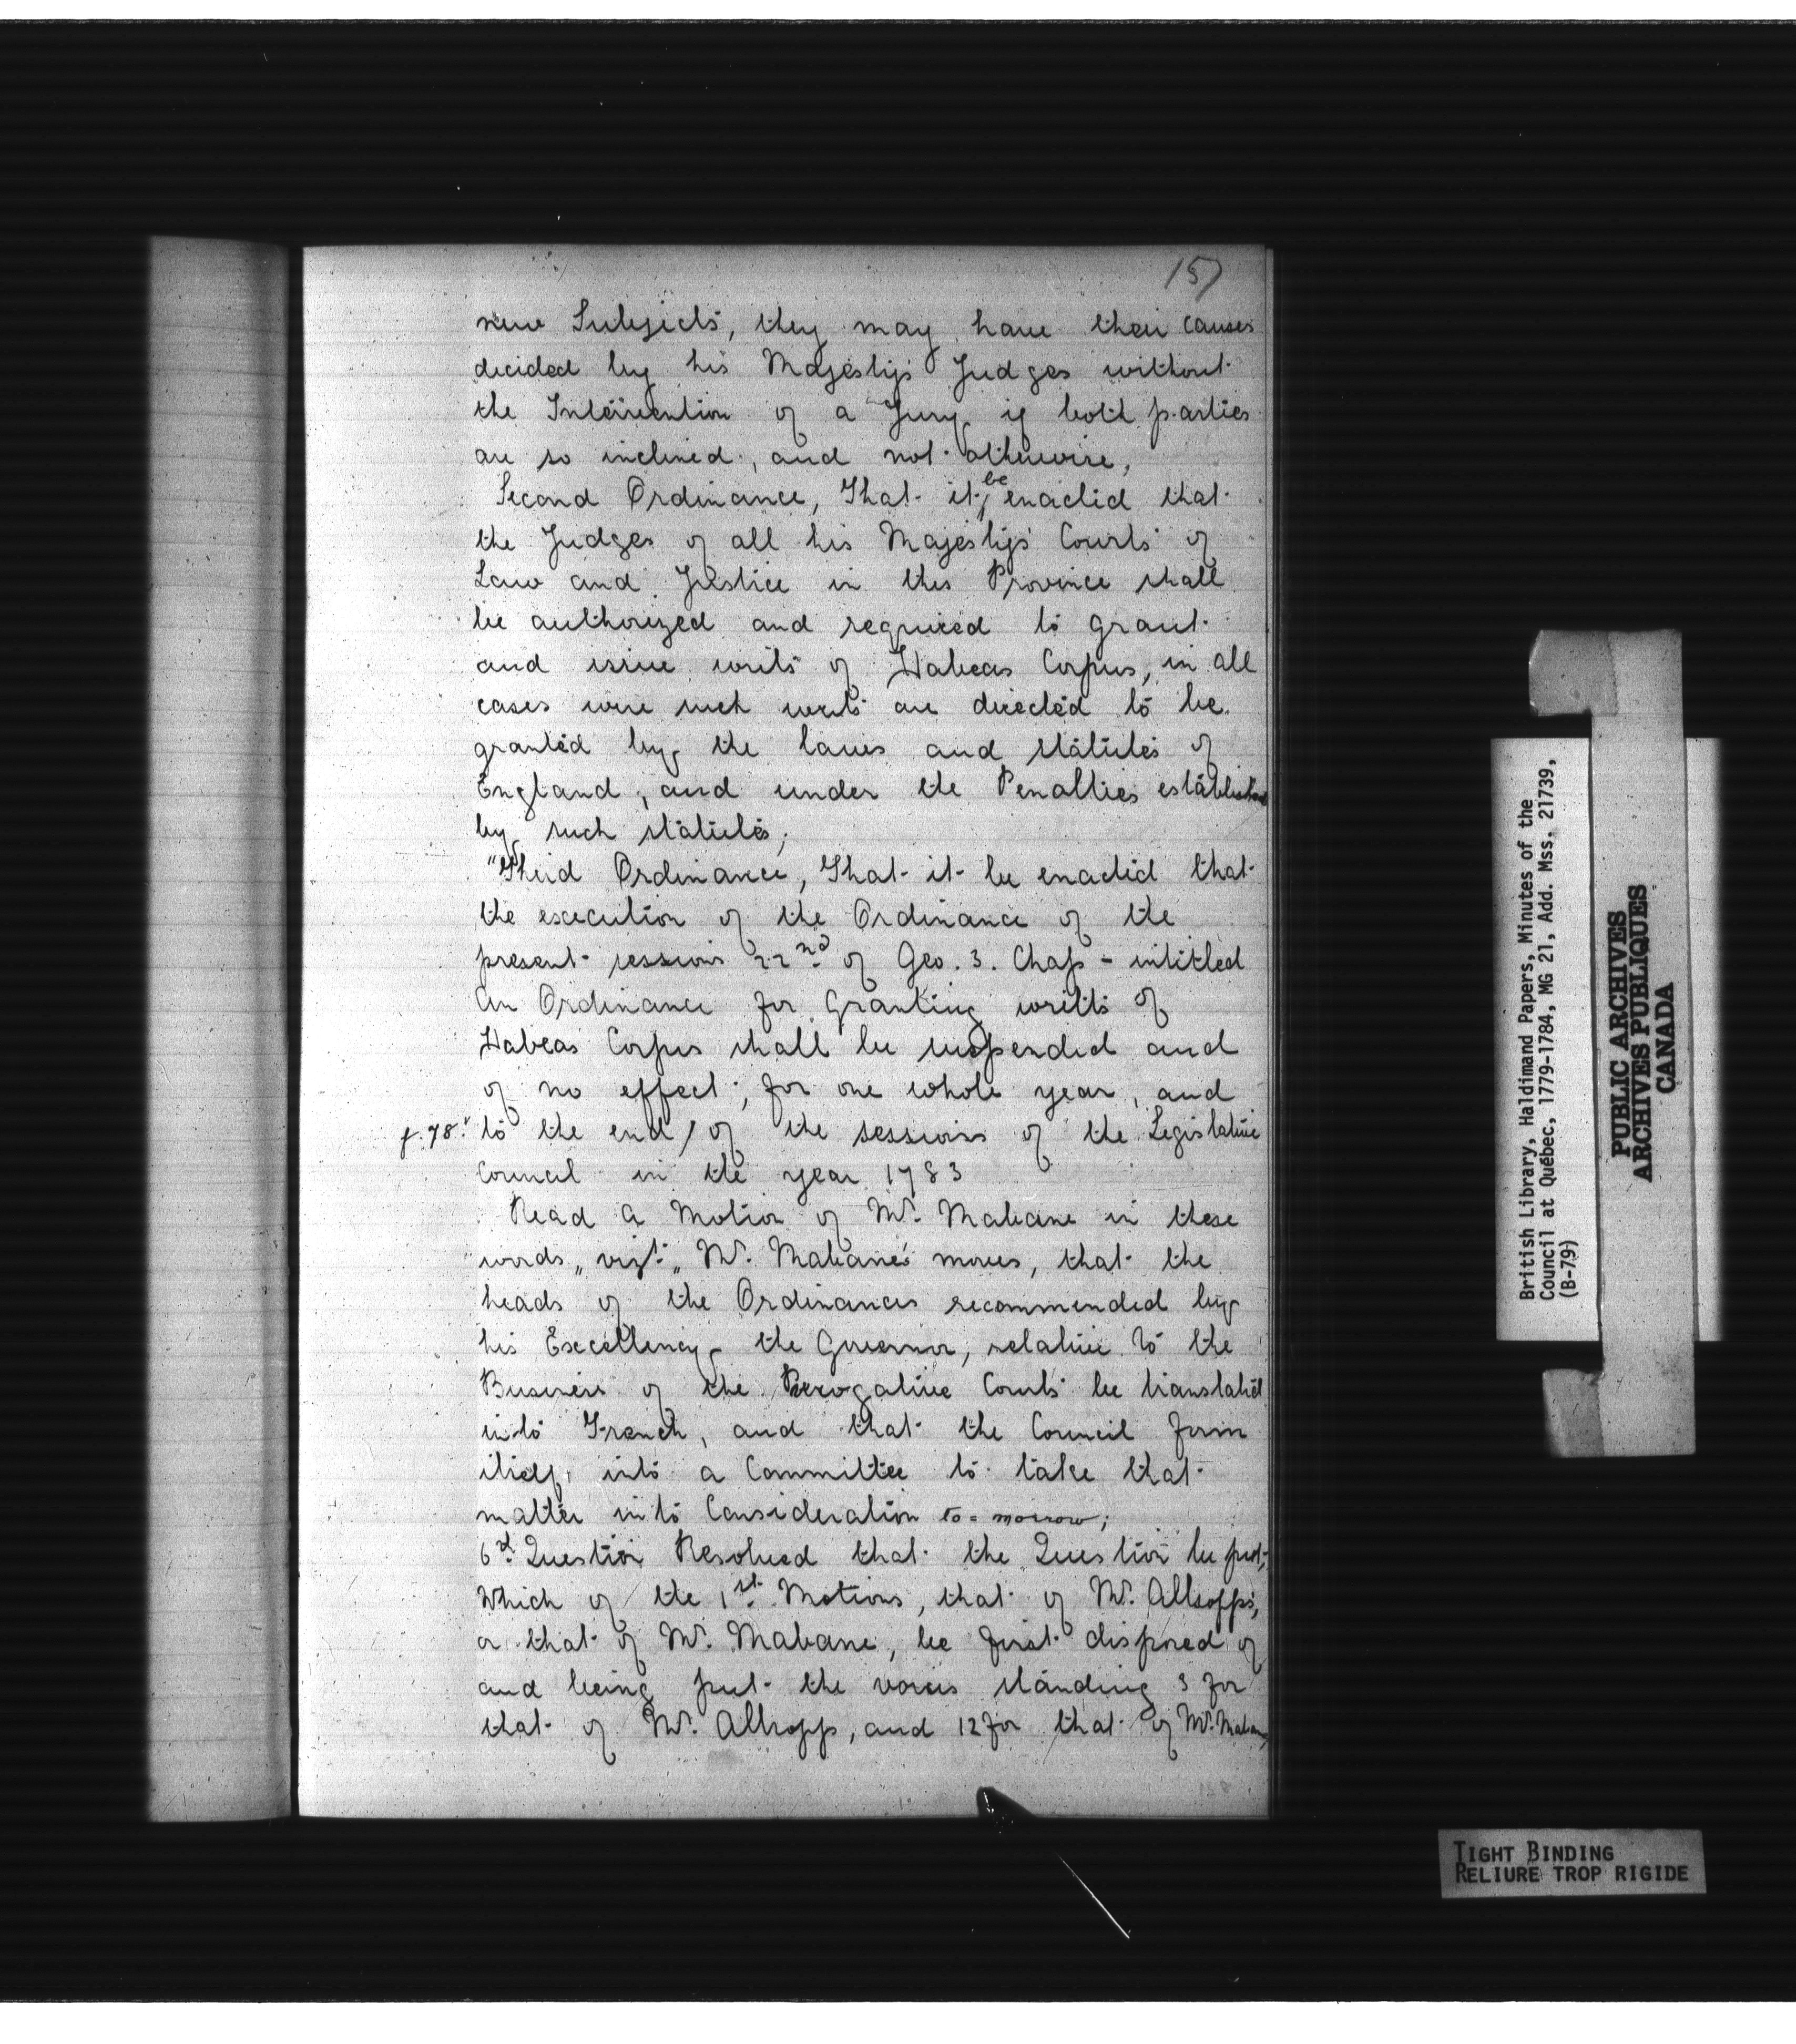 157
new Subjects, they may have their causes
decided by his Majesty's Judges without
the Intervention of a Jury if both parties
are so inclined, and not otherwise,
Second Ordinance, That it be enacted that
the Judges of all his Majesty's Courts of
Law and Justice in this Province shall
be authorized and required to grant
and issue writs of Habeas Corpus, in all
cases were such writs are directed to be
granted by the laws and statutes of
England, and under the Penalties established
by such statutes;
"Third Ordinance, That it be enacted that
the execution of the Ordinance of the
present session 22nd of Geo. 3. Chap - intitled
An Ordinance for Granting writts of
Habeas Corpus shall be suspended and
of no effect, for one whole year, and
f.78. to the end / of the sessions of the Legislative
Council in the year 1783
Read a Motion of Mr. Mabane in these
words „ vizt. „ Mr. Mabane moves, that the
heads of the Ordinances recommended by
his Excellency the Governor, relative to the
Business of the Prerogative Courts be translated
into French, and that the Council form
itself into a Committee to take that
matter into Consideration to=morrow;
6th Question Resolved that the Question be put,
Which of the 1st Motions, that of Mr. Allsopps,
or that of Mr. Mabane, be first disposed of
and being put the voices standing 3 for
that of Mr. Allsopp, and 12 for that of Mr. Mabane,
British Library, Haldimand Papers, Minutes of the
Council at Québec, 1779-1784, MG 21, Add. Mss. 21739,
(B-79)
PUBLIC ARCHIVES
ARCHIVES PUBLIQUES
CANADA
TIGHT BINDING
RELIURE TROP RIGIDE